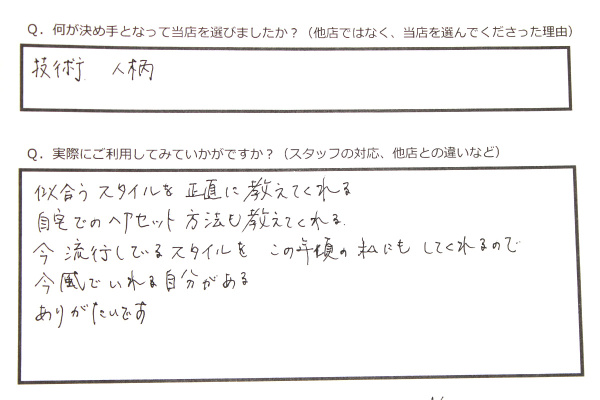 Q．何が決め手となって当店を選びましたか？（他店ではなく、当店を選んでくださった理由）
技術　人柄
Q．実際にご利用してみていかがですか？（スタッフの対応、他店との違いなど）
似合うスタイルを正直に教えてくれる
自宅でのヘアセット方法も教えてくれる.
今流行しているスタイルを　この年頃の私にもしてくれるので
今風でいれる自分がある
ありがたいです